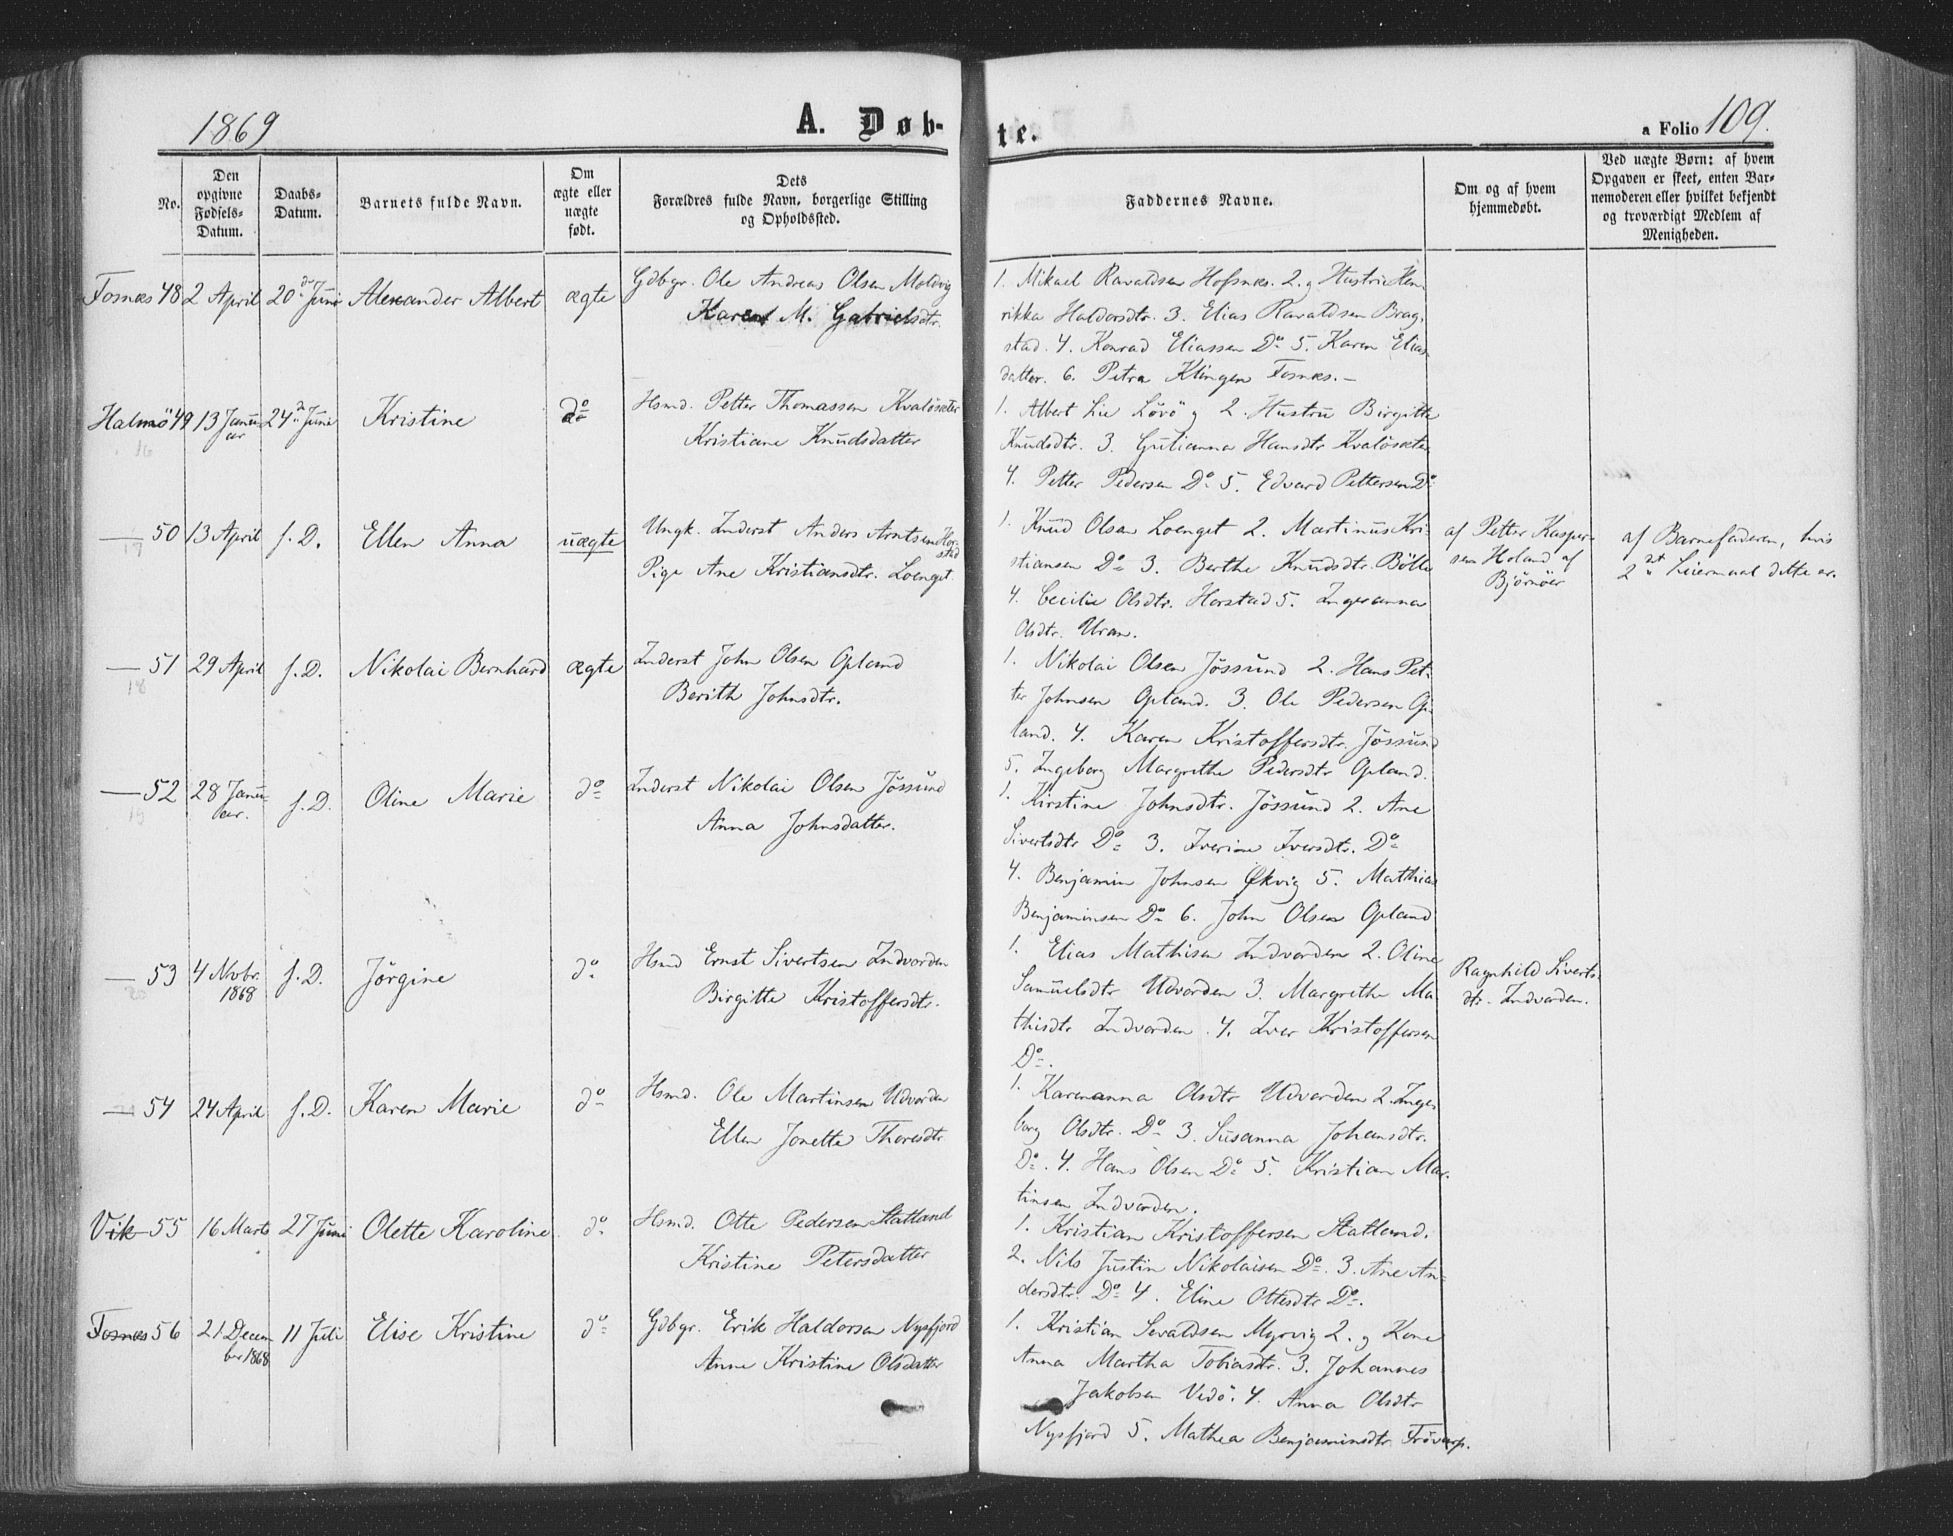 1869
A. Døb-
te.
a Folio 109.
No.
Den
opgivne
Fødsels-
Datum.
Daabs-
Datum.
Barnets fulde Navn.
Om
ægte eller
uægte
født.
Dets
Forældres fulde Navn, borgerlige Stilling
og Opholdssted.
Faddernes Navne.
Om og af hvem
hjemmedøbt.
Ved uægte Børn: af hvem
Opgaven er skeet, enten Bar-
nemoderen eller hvilket bekjendt
og troværdigt Medlem af
Menigheden.
Fosnæs 48 2 April 20de Juni Alexander Albert ægte
Gdbgr. Ole Andreas Olsen Moldvig
Karen M. Gabrielsdtr.
1. Mikael Ravaldsen Hofsnæs. 2. g Hustru Hen-
rikka Haldorsdtr. 3. Elias Ravaldsen Brag-
stad. 4. Konrad Eliassen Do 5. Karen Elias-
datter. 6. Petra Klingen Fosnæs.-
Halmö 49 13 Janu-
ar
24de Juni Kristine do
16
Hsmd. Petter Thomassen Kvalösæter
Kristiane Knudsdatter
1. Albert Lie Lövö g 2. Hustru Birgitte
Knudsdtr. 3. Gulianna Hansdtr Kvalösæter
4. Petter Pedersen Do 5. Edvard Pettersen Do
— 50 13 April s. D. Ellen Anna uægte
17
Ungk. Inderst Anders Arntsen Hor-
stad
Pige Ane Kristiansdtr. Loenget
1. Knud Olsen Loenget 2. Martinus Kri-
stiansen Do 3. Berthe Knudsdtr. Bölle
4. Cecilie Olsdtr. Horstad 5. Ingeranna
Olsdtr. Uran.
af Petter Kasper-
sen Holand af
Bjørnöer
af Barnefaderen, hvis
2det Leiermaal dette er.
— 51 29 April s. D. Nikolai Bernhard ægte
18
Inderst John Olsen Opland
Berith Johnsdtr.
1. Nikolai Olsen Jössund 2. Hans Pet-
ter Johnsen Opland. 3. Ole Pedersen Op-
land. 4. Karen Kristoffersdtr. Jössund
5. Ingeborg Margrethe Pedersdtr Opland.
— 52 28 Janu-
ar.
s. D. Oline Marie do
19
Inderst Nikolai Olsen Jössund
Anna Johnsdatter.
1. Kirstine Johnsdtr. Jössund 2. Ane
Sivertsdtr Do 3. Iverine Iversdtr. Do
4. Benjamin Johnsen Økvig 5. Mathias
Benjaminsen Do 6. John Olsen Opland
— 53 4 Novbr.
1868
s. D. Jørgine do
20
Hsmd Ernst Sivertsen Indvorden
Birgitte Kristoffersdtr.
1. Elias Mathisen Indvorden 2. Oline
Samuelsdtr Udvorden 3. Margrethe Ma-
thisdtr Indvorden. 4. Iver Kristoffersen
Do.
Ragnhild Siverts-
dtr. Indvorden.
— 54 24 April s. D. Karen Marie do
Hsmd. Ole Martinsen Udvorden
Ellen Jonette Thoresdtr.
1. Karenanna Olsdtr Udvorden 2. Inge-
borg Olsdtr. Do 3. Susanna Johansdtr.
Do. 4. Hans Olsen Do 5. Kristian Mar-
tinsen Indvorden.
Vik 55 16 Marts 27 Juni Olette Karoline do
Hsmd. Otte Pedersen Statland
Kristine Petersdatter
1. Kristian Kristoffersen Statland.
2. Nils Justin Nikolaisen Do. 3. Ane An-
dersdtr. Do 4. Eline Ottesdtr Do.
Fosnæs 56 21 Decem-
ber 1868
11 Juli Elise Kristine do
Gdbgr. Erik Haldorsen Nysfjord
Anne Kristine Olsdatter
1. Kristian Sevaldsen Myrvig 2. g Kone
Anna Martha Tobiasdtr. 3. Johannes
Jakobsen Vedö. 4. Anna Olsdtr
Nysfjord 5. Mathea Benjaminsdtr